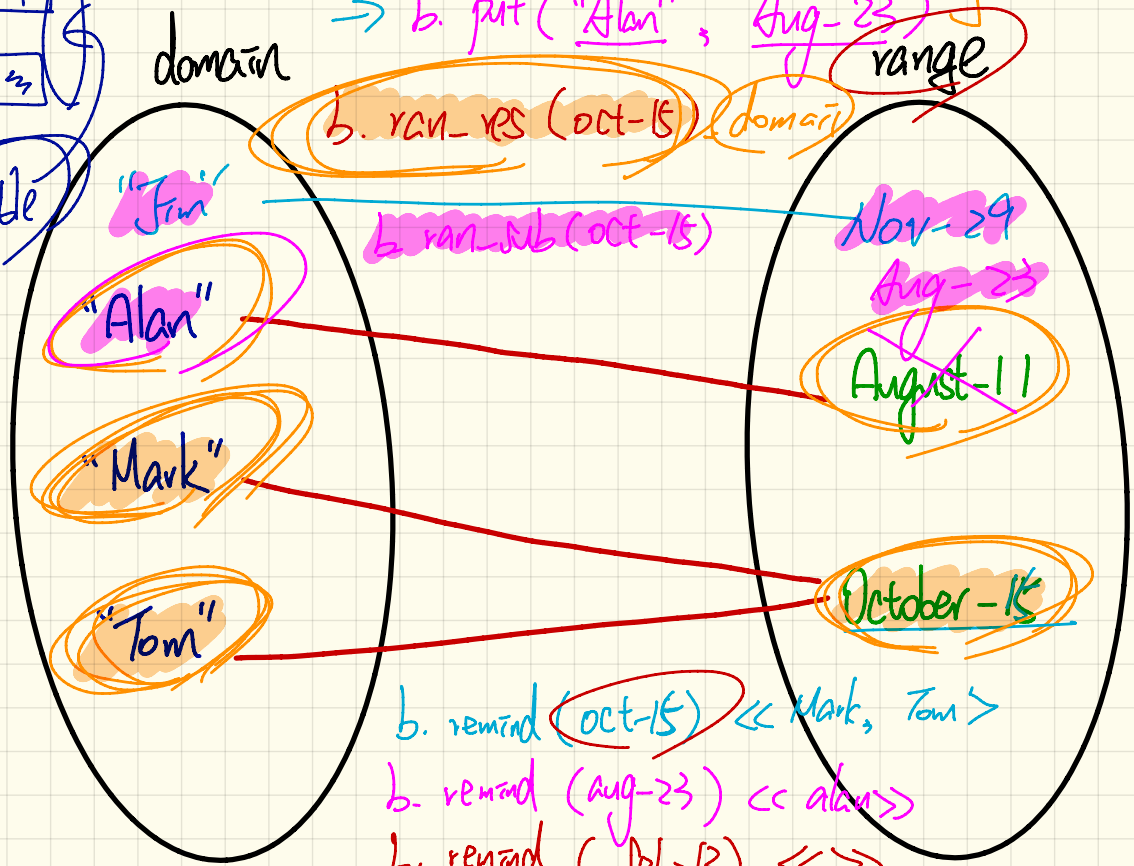 b. put ("Alan", Aug-23)
domain
range
b. ran_res (oct-15).domain
"Jim"
Nov-29
b. ran_sub(oct-15)
Aug-23
"Alan"
August-11
"Mark"
"Tom"
October-15
b. remind (oct-15) << Mark, Tom >
b. remind (aug-23) << alan>>
b. remind